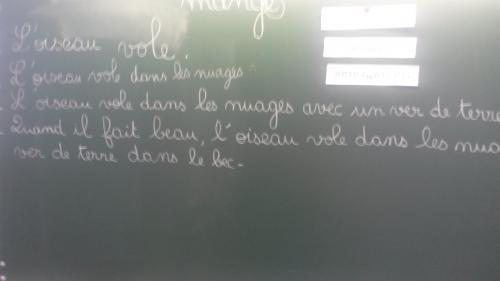 manger
L'oiseau vole.
L'oiseau vole dans les nuages
L'oiseau vole dans les nuages avec un ver de terre
Quand il fait beau, l'oiseau vole dans les nua
ver de terre dans le bec.